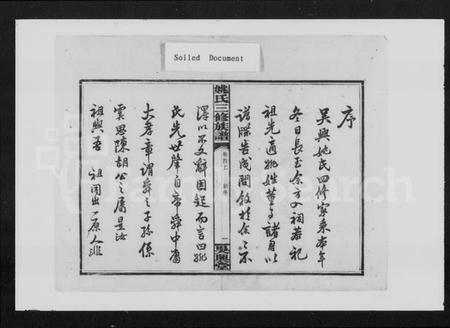 Soiled Document
序
吳興姚氏四修家乘本年
冬日長至余方以祠若祀
祖先適姚姓董事諸自以
譜牒告成問敘於余之不
得以不文辭因起而言曰姚
氏先世肇自帝舜中庸
大孝章謂舜之子孫係
虞思陳胡公之屬是汝
祖與吾祖同出一原人雖
姚氏三修族譜
卷首上
新序
一
吳興堂
FamilySearch